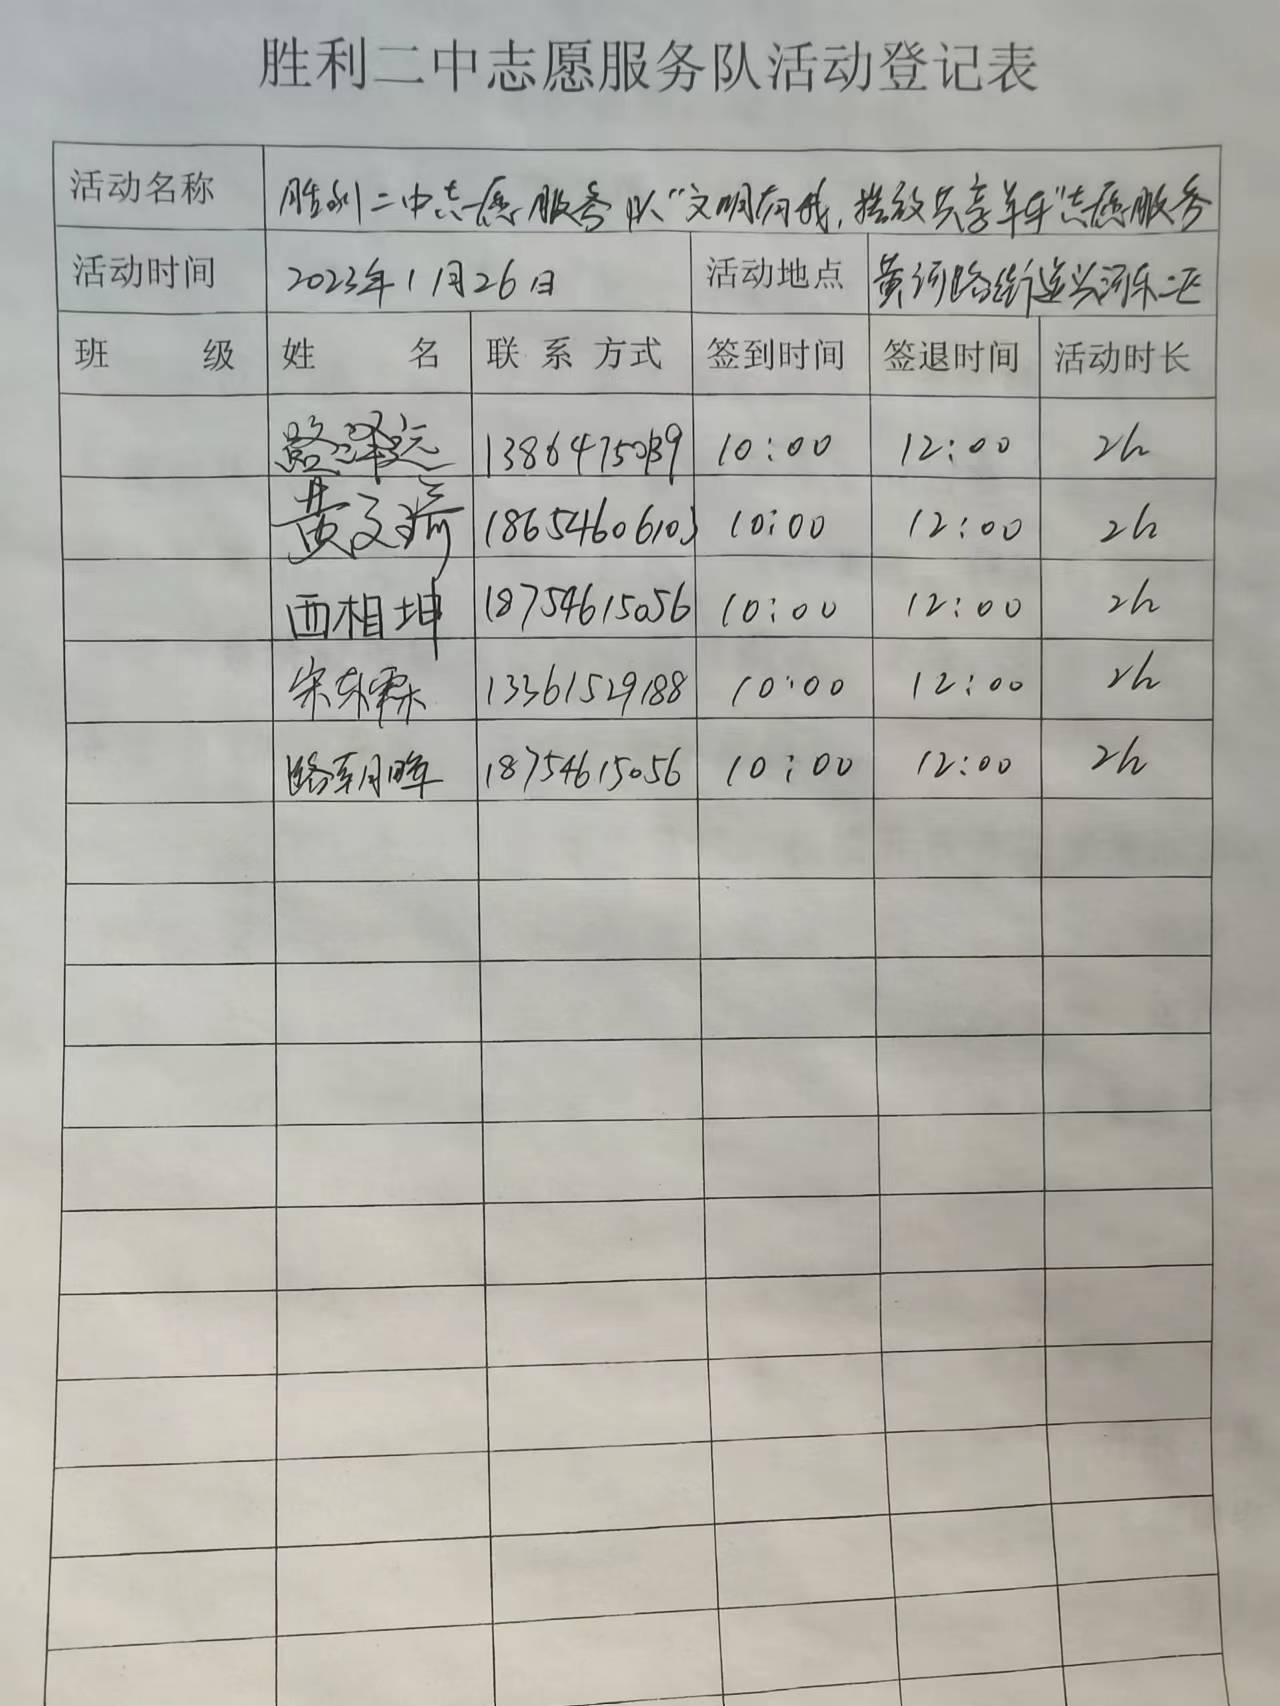 胜利二中志愿服务队活动登记表
活动名称 胜利二中志愿服务队“文明有我,摆放共享单车”志愿服务
活动时间 2023年1月26日 活动地点 黄河路街道兴河东二区
班级 姓名 联系方式 签到时间 签退时间 活动时长
路泽远 10:00 12:00 2h
黄文琦 18654606103 10:00 12:00 2h
西相坤 18754615056 10:00 12:00 2h
宋东霖 13361529188 10:00 12:00 2h
路 18754615056 10:00 12:00 2h